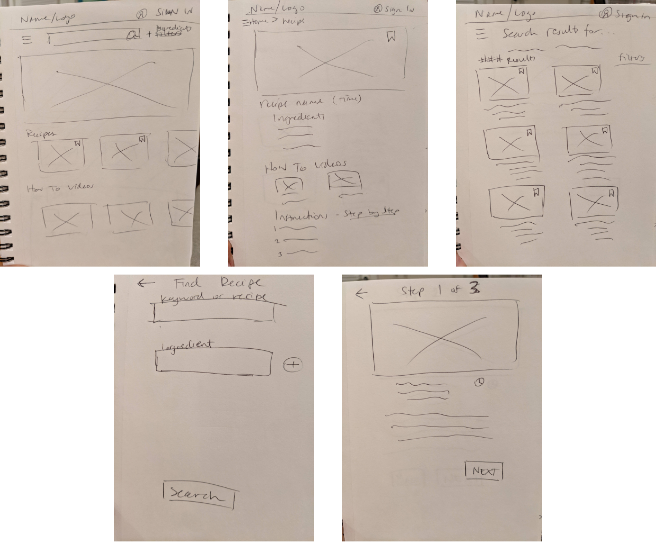 Name/Logo Sign In
+ Ingredients
Recipes
How To Videos
Name/Logo Sign In
Home > Recipe
recipe name (time)
Ingredients
How To Videos
Instructions - Step by Step
1
2
3
Name/Logo Sign in
Search results for...
Results
filters
← Find Recipe
Keyword or recipe
Ingredient
+
Search
← Step 1 of 3
NEXT